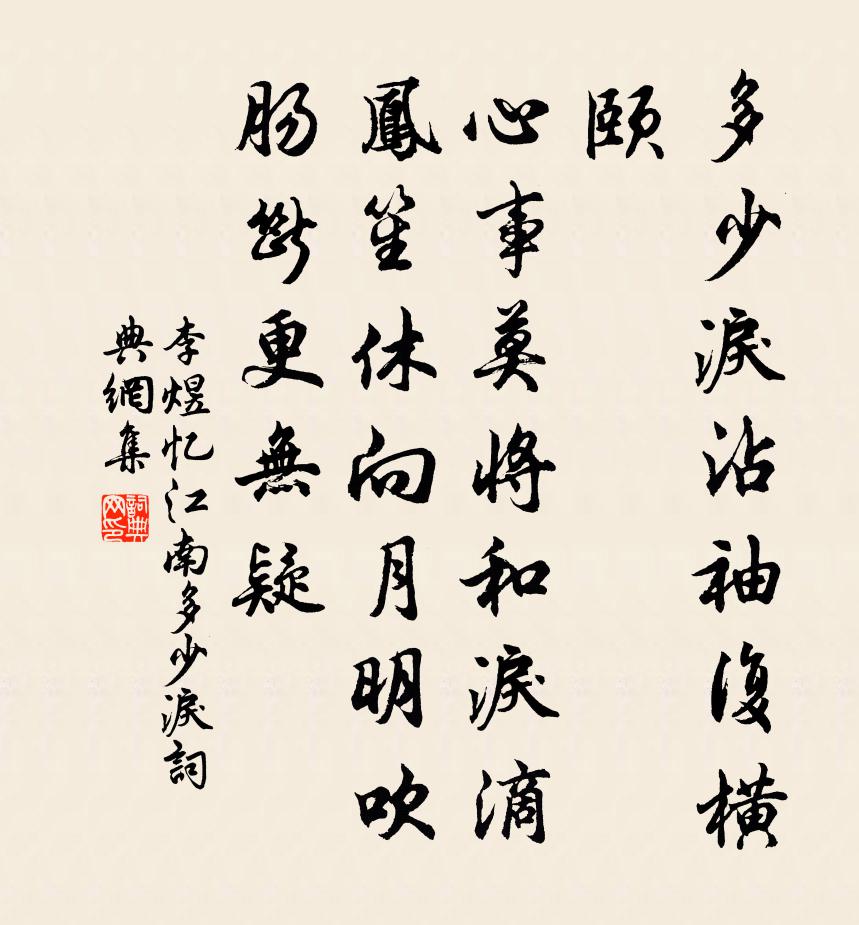 多少淚沾袖復橫
頤
心事莫將和淚滴
鳳笙休向月明吹
腸斷更無疑
李煜忆江南多少淚詞
典網集
詞典
网印